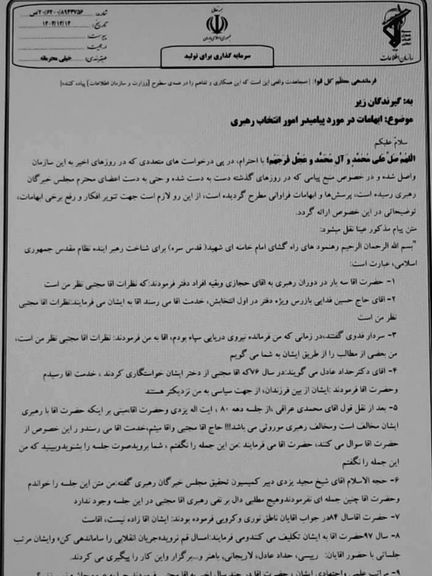 شماره: ۶۲۰/۸۹۴۴۷۵۶/ص
تاریخ: ۱۴۰۴/۱۲/۱۴
پیوست:
خیلی محرمانه
سرمایه گذاری برای تولید
سازمان اطلاعات
فرماندهی معظم کل قوا: مساهدت واقعی این است که این همکاری و تفاهم را در همه‌ی سطوح [وزارت و سازمان اطلاعات] پیاده کنند؛
به: گیرندگان زیر
موضوع: ابهامات در مورد پیامبر امور انتخاب رهبری
سلام علیکم
اللهم صل علی محمد و آل محمد و عجل فرجهم با احترام، در پی درخواست های متعددی که در روزهای اخیر به این سازمان
واصل شده و در خصوص منبع پیامی که در روزهای گذشته دست به دست شده و حتی به دست اعضای محترم مجلس خبرگان
رهبری رسیده است، پرسش‌ها و ابهامات فراوانی مطرح گردیده است، از این رو لازم است جهت تنویر افکار و رفع برخی ابهامات،
توضیحاتی در این خصوص ارائه گردد.
متن پیام مذکور عینا نقل میشود:
"بسم الله الرحمان الرحیم رهنمود های راه گشای امام خامنه ای شهید( قدس سره) برای شناخت رهبر اینده نظام مقدس جمهوری
اسلامی، عبارت است:
۱- حضرت اقا سه بار در دوران رهبری به اقای حجازی وبقیه افراد دفتر فرمودند:که نظرات اقا مجتبی نظر من است
۲- اقای حاج حسین فدایی بازرس ویژه دفتر در اول انتخابش، خدمت اقا می رسند اقا به ایشان می فرمایند:نظرات اقا مجتبی
نظر من است
۳- سردار فدوی گفتند،در زمانی که من فرمانده نیروی دریایی سپاه بودم، اقا به من فرمودند: نظرات اقا مجتبی نظر من است،
من بعضی از مطالب را از طریق ایشان به شما می گویم
۴- اقای دکترحداد عادل می گویند:در سال ۷۶که اقا مجتبی از دختر ایشان خواستگاری کردند ، خدمت اقا رسیدم
وحضرت اقا فرمودند :ایشان از بین فرزندان، از جهت سیاسی به من نزدیکتر هستند
۵- بعد از نقل قول اقای محمدی عراقی ،از جلسه دهه ۸۰ ، ایت اله یزدی وحضرت اقا،مبنی بر اینکه حضرت اقا با رهبری
ایشان مخالف است ومخالف رهبری موروثی می باشد!!! حاج اقا مجتبی واقا میثم،خدمت اقا می رسند و از این خصوص از
حضرت اقا سوال می کنند، حضرت اقا می فرمایند :من این جمله را نگفتم ، شما برویدصوت جلسه را بشنویدوببینید که من
این جمله را نگفتم
۶- حجه الاسلام اقای شیخ مجید یزدی دبیر کمیسیون تحقیق مجلس خبرگان رهبری گفته:من متن این جلسه را خواندم
وحضرت اقا چنین جمله ای نفرمودندوهیچ مطلبی دال بر نفی رهبری اقا مجتبی در این جلسه وجود ندارد
۷- حضرت اقاسال ۸۴در جواب اقایان ناطق نوری وکروبی فرموده بودند: ایشان اقا زاده نیست، اقاست
۸- سال ۹۷حضرت اقا به ایشان تکلیف می کنندومی فرمایند:امسال قم نرویدجریان انقلابی را ساماندهی کن! وایشان مرتب
جلساتی با حضور اقایان: رییسی، حداد عادل، لاریجانی، باهنر و...برگزار واین کار را پیگیری می کردند.